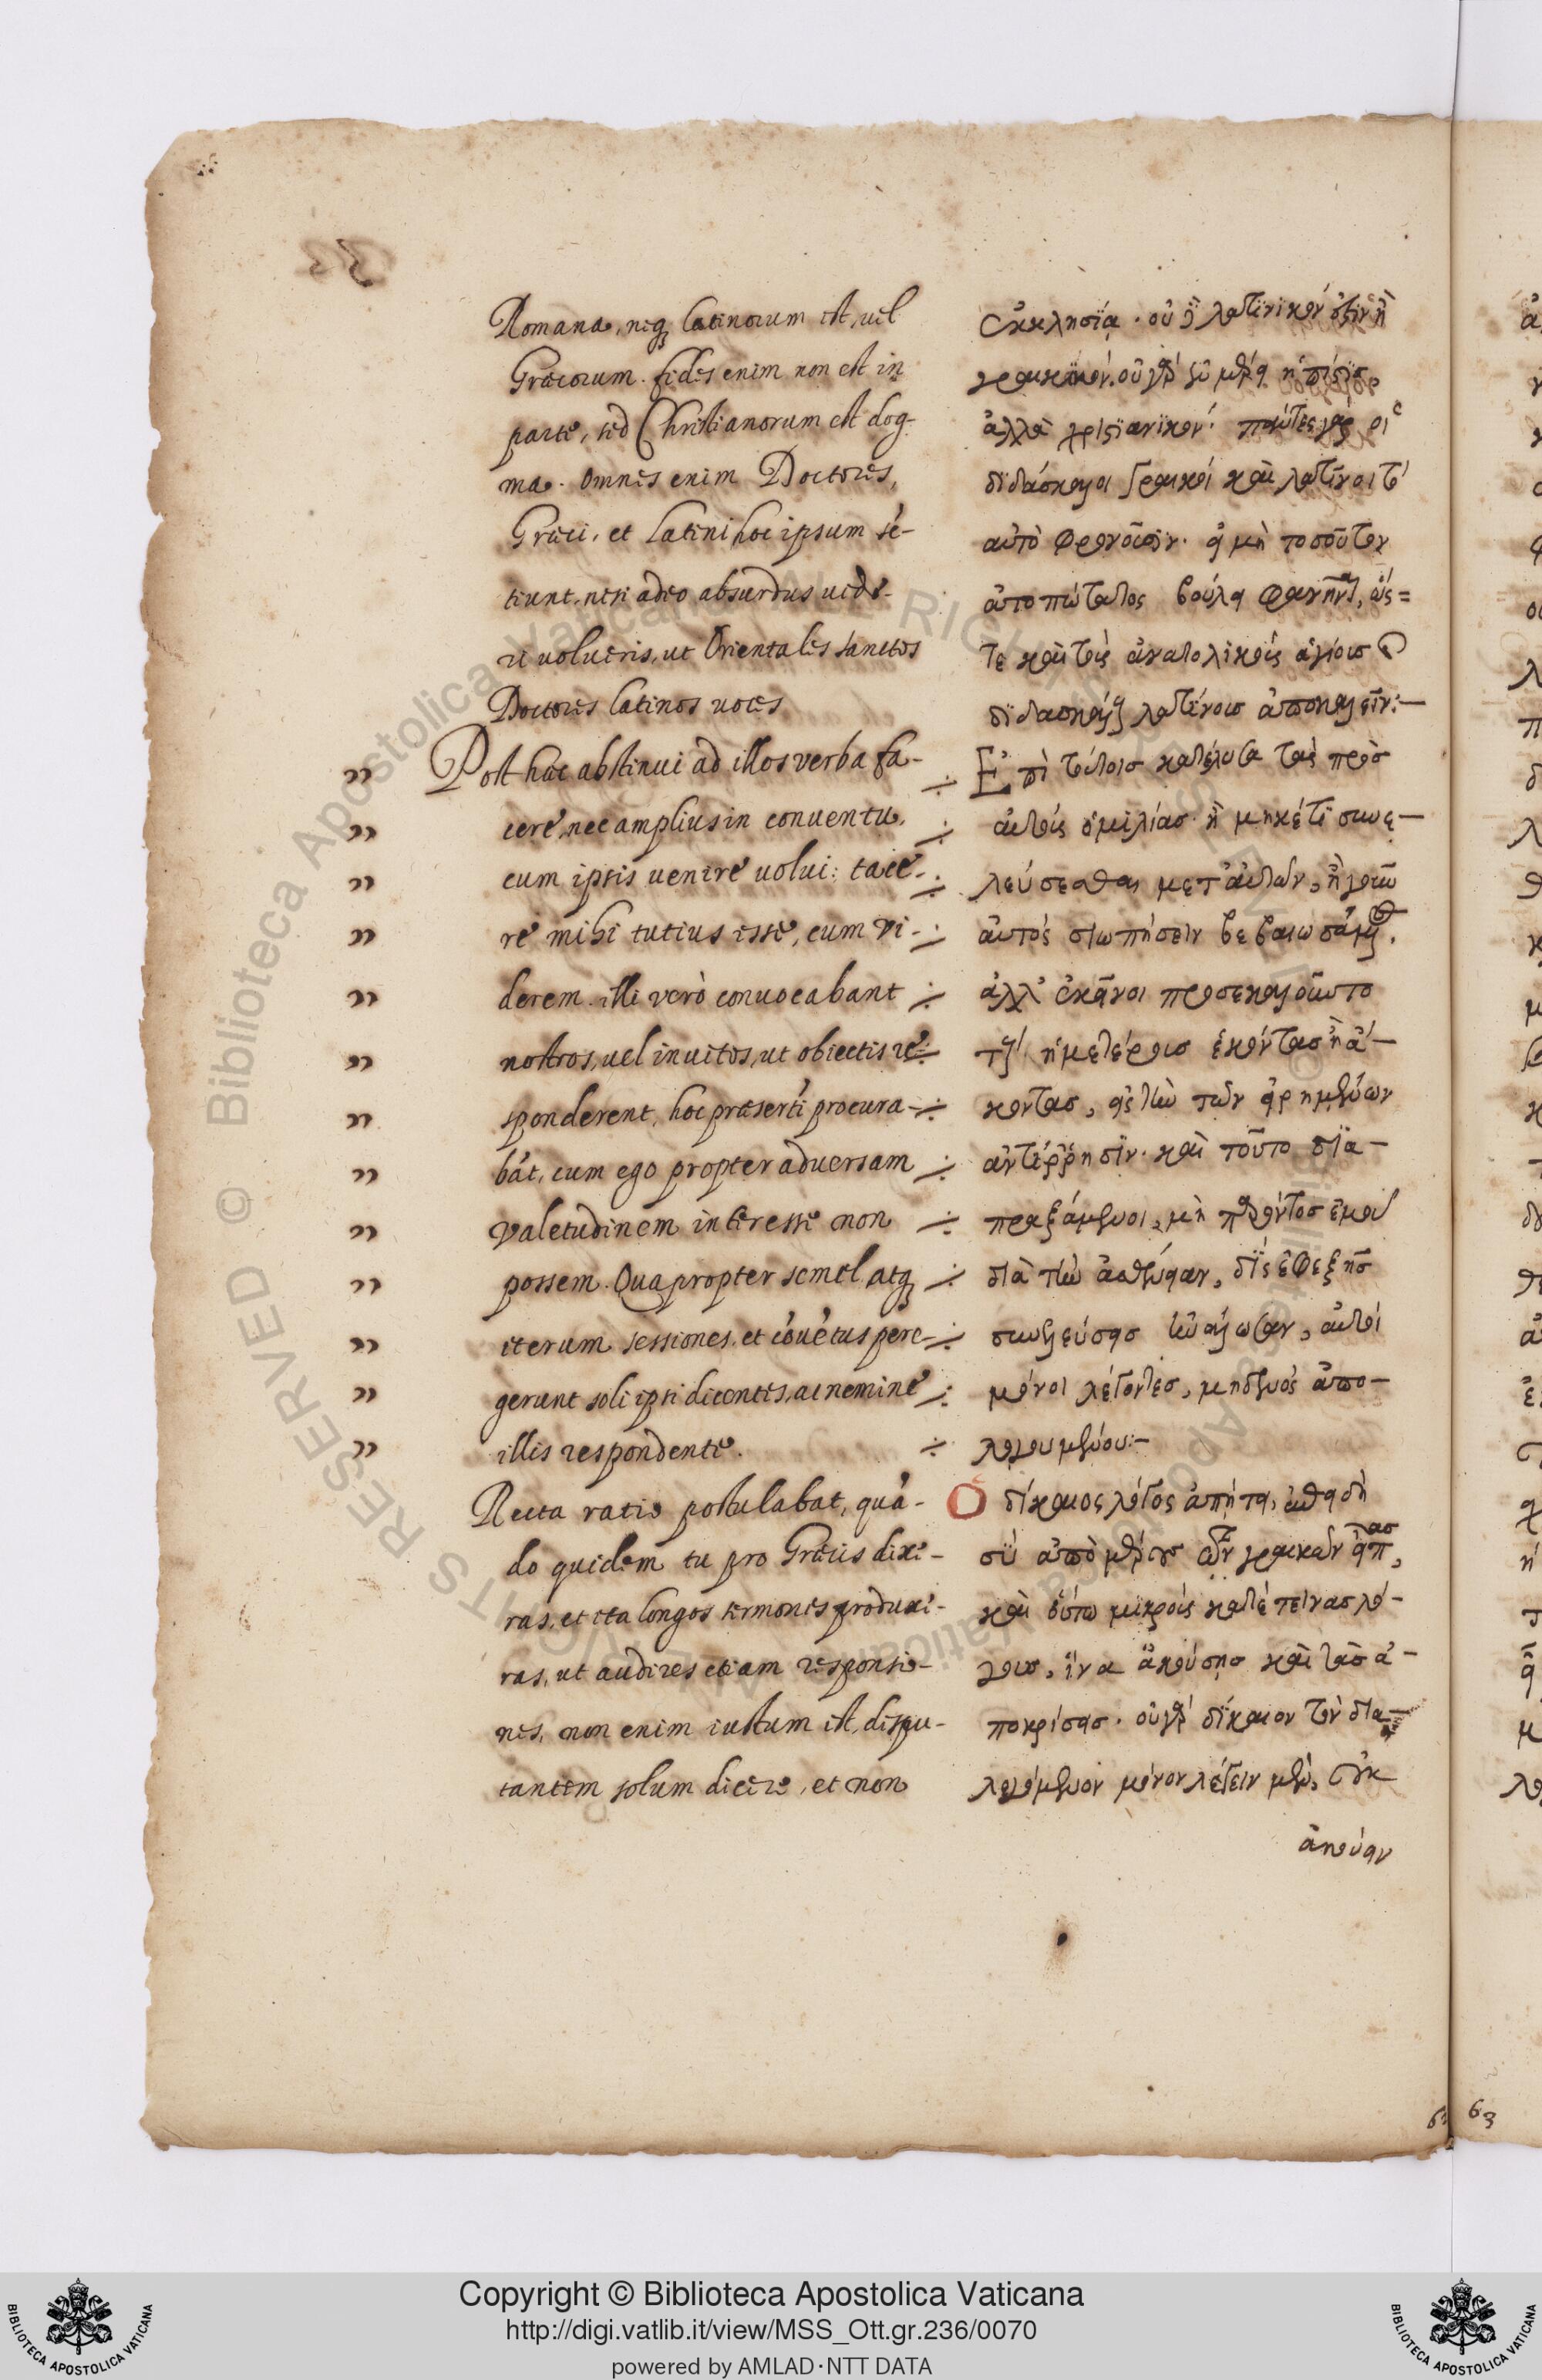 Romana, neq3 Latinorum est, uel
Græcorum. fides enim non est in
parte, sed Christianorum est dog-
ma. Omnes enim Doctores,
Græci, et Latini hoc ipsum sē-
tiunt, nisi adeo absurdus uide-
ri uolueris, ut Orientales sanctos
Doctores Latinos uoces
Post hac abstinui ad illos verba fa-
cere, nec amplius in conuentu,
cum ipsis uenire uolui: tace-
re mihi tutius esse, cum vi-
derem. illi verò conuocabant
nostros, uel inuitos, ut obiectis re-
sponderent, hoc præsertī procura-
bāt, cum ego propter aduersam
valetudinem interesse non
possem. Quapropter semel, atq3
iterum sessiones, et cōuētus pere-
gerunt soli ipsi dicentes, ac nemine
illis respondente.
Recta ratio postulabat, quā-
do quidem tu pro Græcis dixe-
ras, et ita longos sermones produxe-
ras, ut audires etiam responsio-
nes, non enim iustum est, dispu-
tantem solum dicere, et non
ἐκκλησία. οὐδὲ λατινικόν ἐστιν ἢ
γραικικόν. οὐ γὰρ ἐν μέρει ἡ πίστις,
ἀλλὰ χριστιανικόν. πάντες γὰρ οἱ
διδάσκαλοι γραικοί καὶ λατῖνοι τ'
αὐτὸ φρονοῦσιν. εἰ μὴ τοσοῦτον
ἀτοπώτατος βούλει φανῆναι, ὥς=
τε καὶ τοὺς ἀνατολικοὺς ἁγίους
διδασκάλους λατίνους ἀποκαλεῖν:—
Ἐπὶ τούτοις κατέλυσα τὰς πρὸς
αὐτοὺς ὁμιλίας. ἢ μηκέτι συνε—
λεύσεσθαι μετ' αὐτῶν, ἢ γοῦν
αὐτὸς σιωπήσειν βεβαιωσάμενος.
ἀλλ' ἐκεῖνοι προσεκαλοῦντο
τοὺς ἡμετέρους ἑκόντας ἢ ἄ—
κοντας, εἰς τὴν τῶν εἰρημένων
ἀντίρρησιν. καὶ τοῦτο δια—
πραξάμενοι, μὴ παρόντος ἐμοῦ
διὰ τὴν ἀσθένειαν, δὶς ἐφεξῆς
συνελεύσεις ἐνάλωσαν, αὐτοὶ
μόνοι λέγοντες, μηδενὸς ἀπο—
λογουμένου:—
Ὁ δίκαιος λόγος ἀπῄτει, ἐπειδὴ
σὺ ἀπὸ μέρους τῶν γραικῶν εἶπας,
καὶ οὕτω μακροὺς κατέτεινας λό—
γους, ἵνα ἀκούσῃς καὶ τὰς ἀ—
ποκρίσεις. οὐ γὰρ δίκαιον τὸν δια—
λεγόμενον μόνον λέγειν μὲν, οὐκ
ἀκούειν
63
Copyright © Biblioteca Apostolica Vaticana
http://digi.vatlib.it/view/MSS_Ott.gr.236/0070
powered by AMLAD·NTT DATA